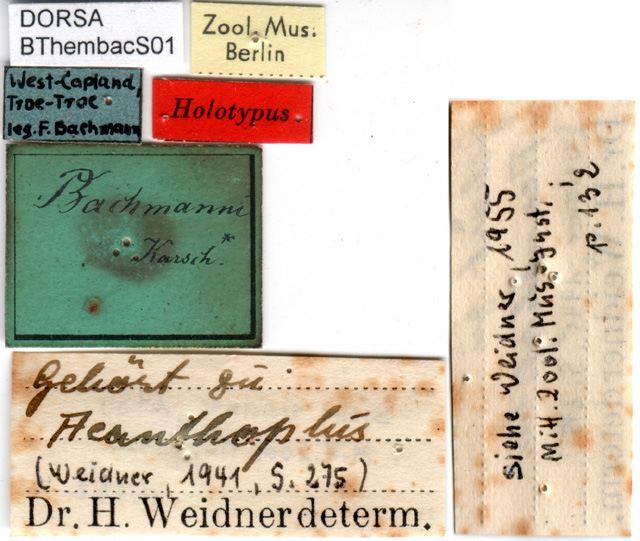 DORSA
BThembacS01
Zool. Mus.
Berlin
West-Capland,
Troe-Troe
leg. F. Bachmann
Holotypus
Bachmanni
Karsch.*
Gehört zu
Acanthoplus
(Weidner, 1941, S. 275)
Dr. H. Weidner determ.
siehe Weidner, 1955
Mitt. Zool. Mus. u. Inst.
p. 132